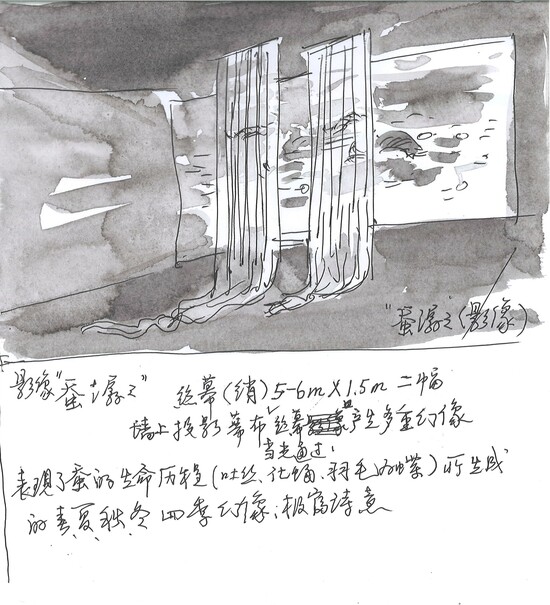 "蚕潺之"(影像)
影像"蚕潺之" 丝幕(绡) 5-6m×1.5m 二幅
墙上投影幕布 丝幕 产生多重幻像
当光通过
表现了蚕的生命历程(吐丝、化蛹、羽毛的蝶)所生成
的春夏秋冬四季幻像,极富诗意